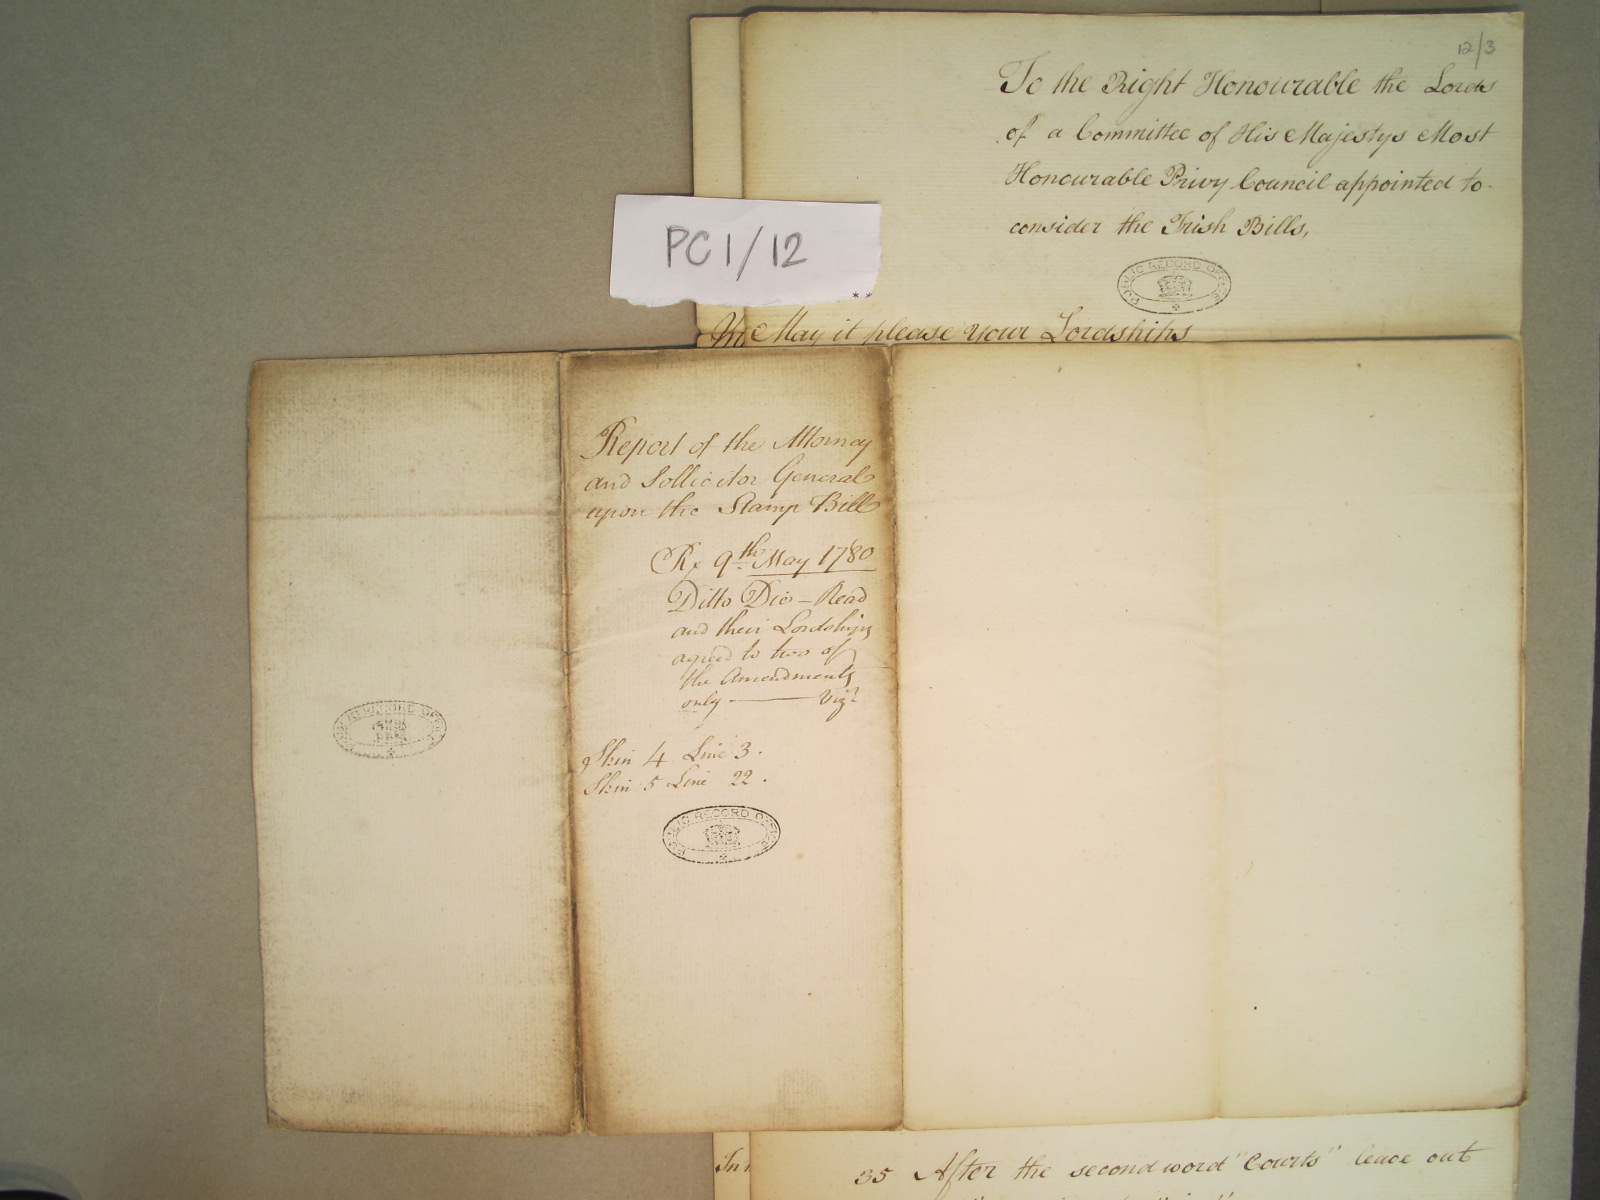 12/3
To the Right Honourable the Lords
of a Committee of His Majestys Most
Honourable Privy Council appointed to
consider the Irish Bills,
PUBLIC RECORD OFFICE
PC 1/12
May it please your Lordships
Report of the Attorney
and Sollicitor General
upon the Stamp Bill
Rx 9th May 1780
Ditto Die - Read
and their Lordships
agreed to two of
the Amendments
only — Vizt
Skin 4 Line 3.
Skin 5 Line 22.
PUBLIC RECORD OFFICE
PUBLIC RECORD OFFICE
35 After the second word "Courts" leave out